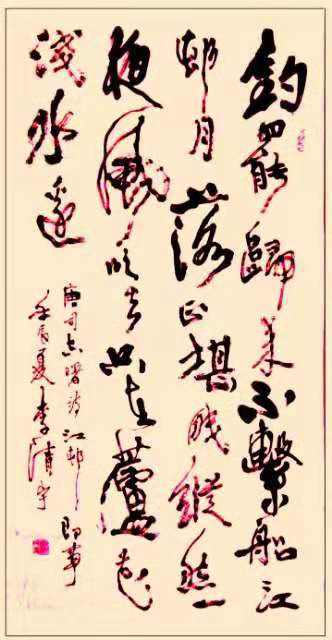 釣罷歸来不繫船江
邨月落正堪眠縱然一
夜風吹去只在蘆花
淺水邊
唐司空曙詩江邨即事
壬辰夏李清宇